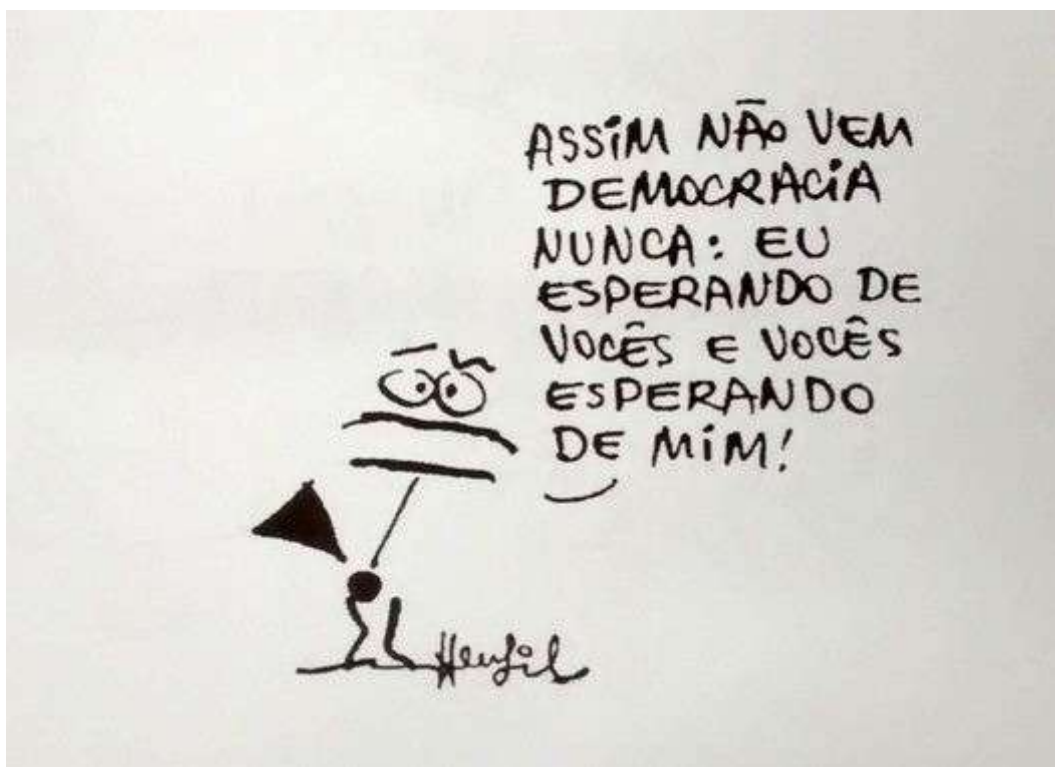 ASSIM NÃO VEM
DEMOCRACIA
NUNCA: EU
ESPERANDO DE
VOCÊS E VOCÊS
ESPERANDO
DE MIM!
Henfil